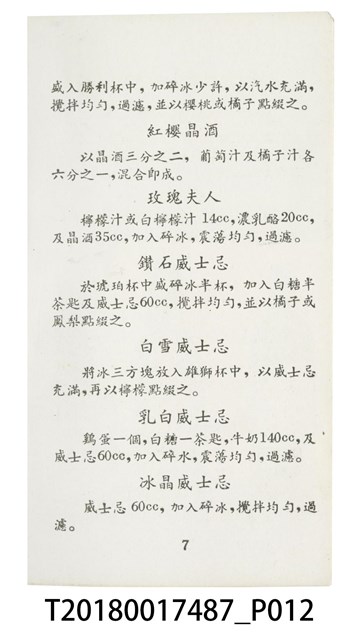 盛入勝利杯中，加碎冰少許，以汽水充滿，
攪拌均勻，過濾，並以櫻桃或橘子點綴之。
紅櫻晶酒
以晶酒三分之二，葡萄汁及橘子汁各
六分之一，混合即成。
玫瑰夫人
檸檬汁或白檸檬汁14cc，濃乳酪20cc，
及晶酒35cc，加入碎冰，震蕩均勻，過濾。
鑽石威士忌
於琥珀杯中盛碎冰半杯，加入白糖半
茶匙及威士忌60cc，攪拌均勻，並以橘子或
鳳梨點綴之。
白雪威士忌
將冰三方塊放入雄獅杯中，以威士忌
充滿，再以檸檬點綴之。
乳白威士忌
鷄蛋一個，白糖一茶匙，牛奶140cc，及
威士忌60cc，加入碎水，震蕩均勻，過濾。
冰晶威士忌
威士忌60cc，加入碎冰，攪拌均勻，過
濾。
7
T20180017487_P012